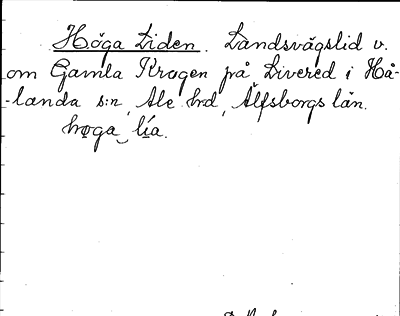 Höga Liden. Landsvägslid v.
om Gamla Krogen på Livered i Hå-
-landa s:n, Ale hrd, Älfsborgs län.
høga‿lía.